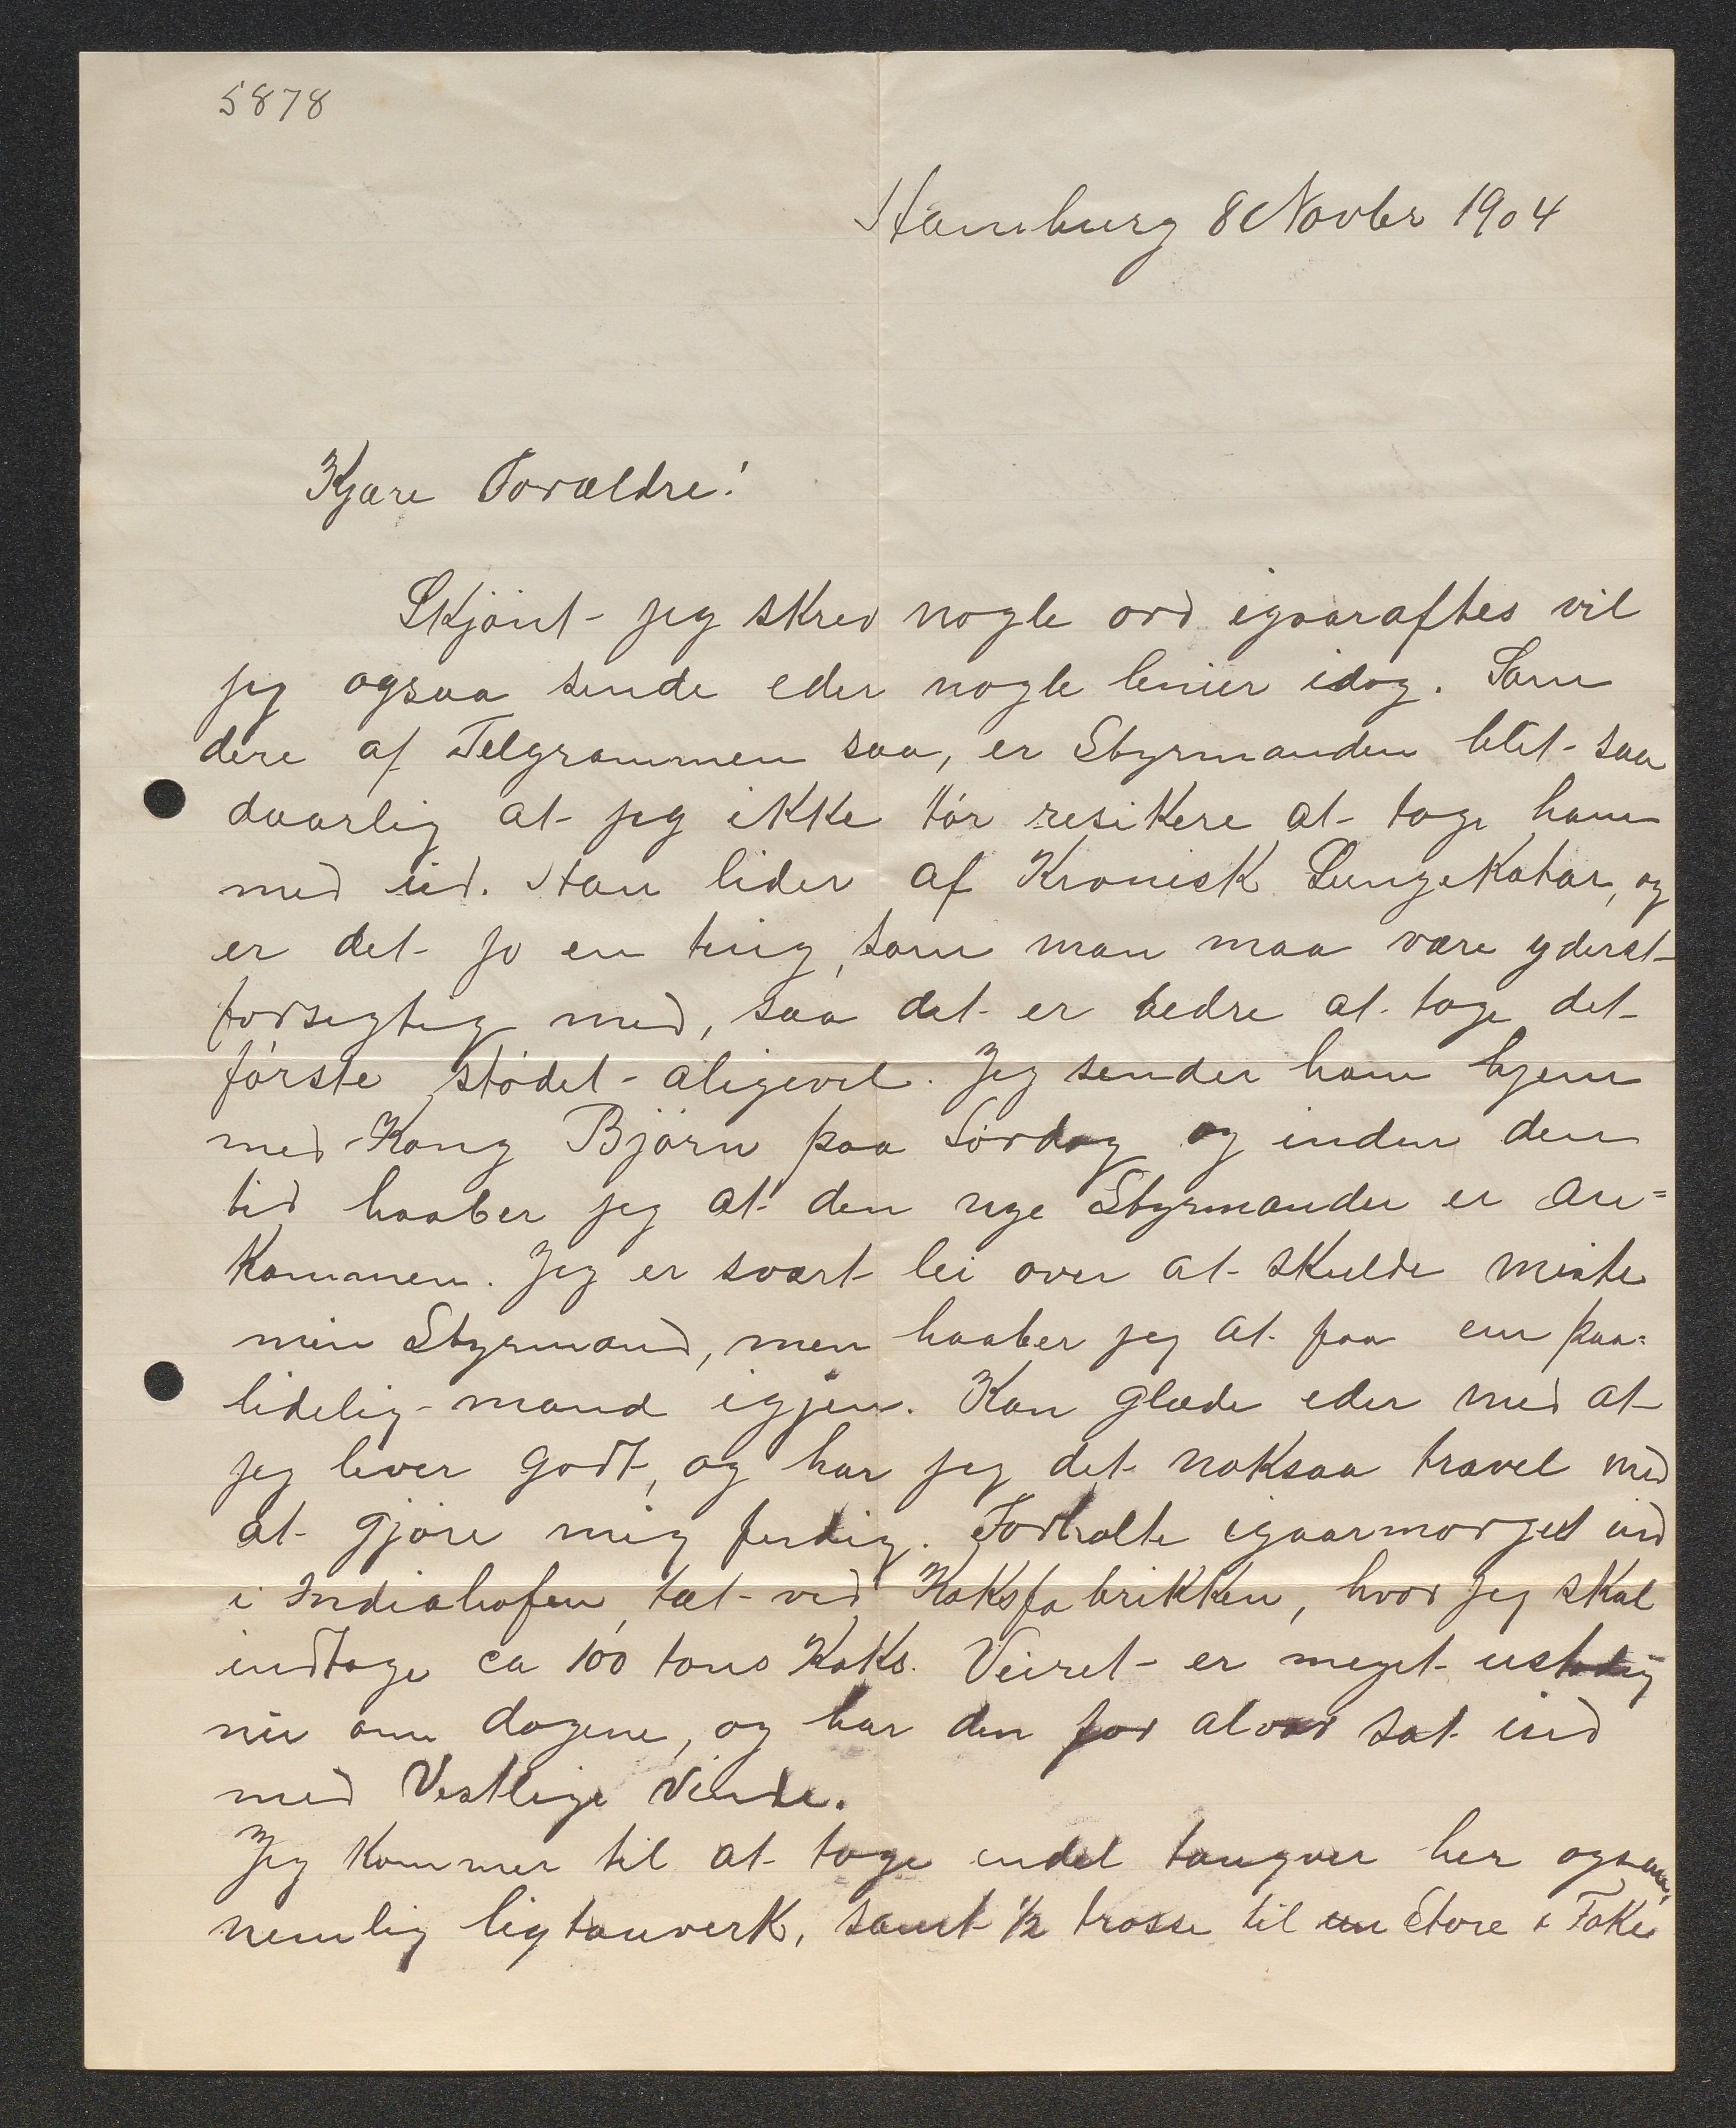 5878
Hamburg 8 Novbr 1904
Kjære Forældre!
Skjönt jeg skrev nogle ord igaaraftes vil
jeg ogsaa sende eder nogle linier idag. Som
dere af Telgrammen saa, er Styrmanden blit saa
daarlig at jeg ikke tör resikere at tage ham
med ud. Han lider af Kronisk Lungekatar, og
er det jo en ting, som man maa være yderst
forsegtig med, saa det er bedre at tage det
förste stödet aligevel. Jeg sender ham hjem
med Kong Björn paa Lördag og inden den
tid haaber jeg at den nye Styrmanden er an=
kommen. Jeg er svært lei over at skulde miste
min Styrmand, men haaber jeg at faa en paa=
lidelig mand igjen. Kan glæde eder med at
jeg lever godt, og har jeg det noksaa travel med
at gjöre mig ferdig. Forhalte igaarmorges ind
i Indiahafen, tæt ved Koksfabrikken, hvor jeg skal
indtage ca 100 tons Koks. Veiret er meget ustadig
nu om dagene, og har den for alvor sat ind
med Vestlige Vinde.
Jeg kommer til at tage endel taugver her ogsaa,
nemlig ligtauverk, samt 1/2 trosse til en Store & Fokke